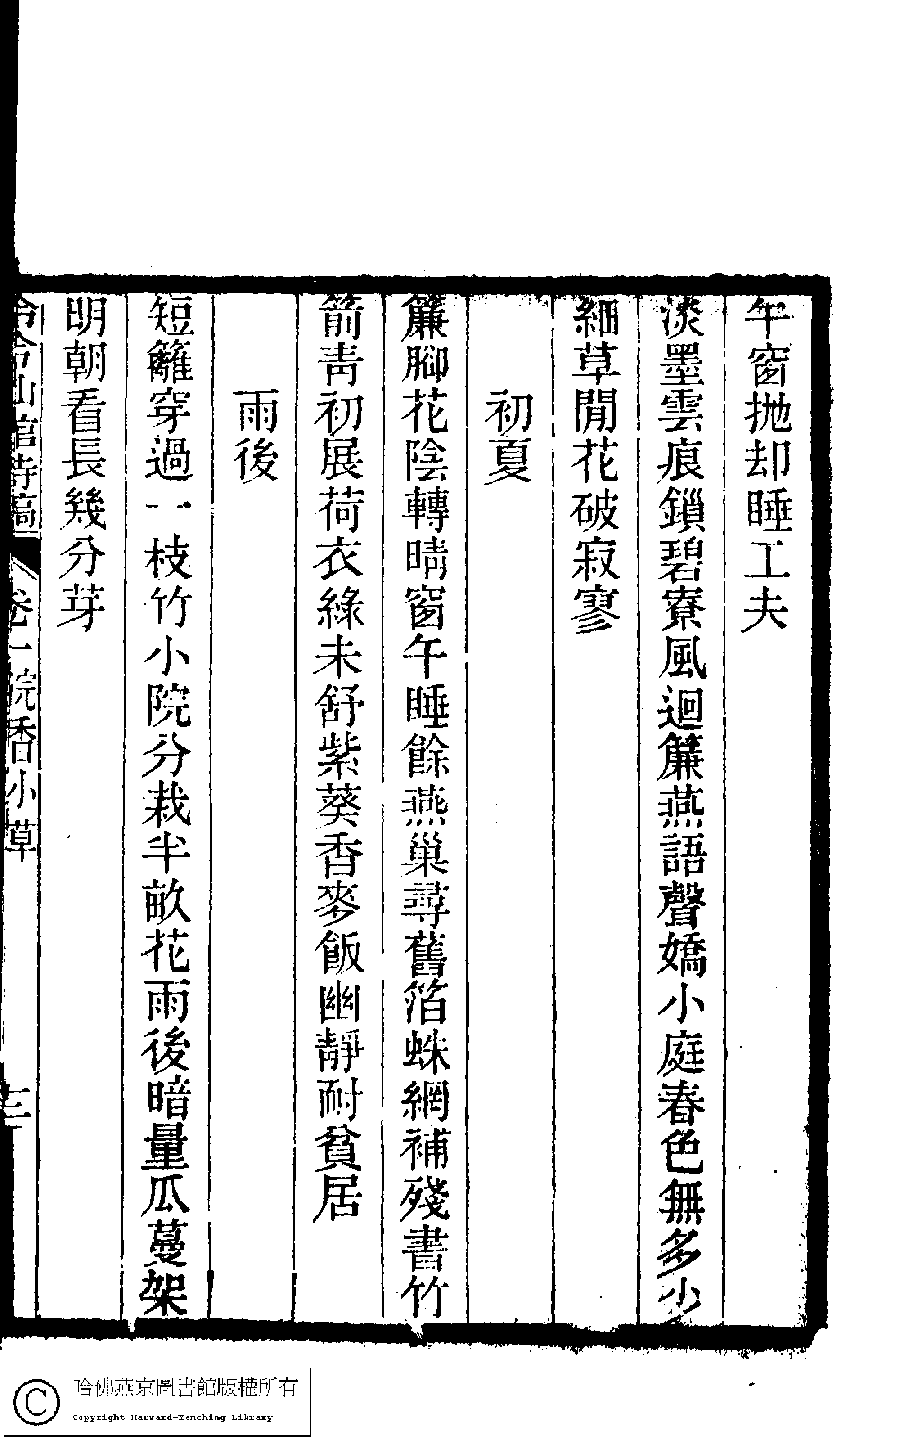 午窗抛却睡工夫
淡墨雲痕鎖碧寮風迴簾燕語聲嬌小庭春色無多少
細草閒花破寂寥
初夏
簾脚花陰轉晴窗午睡餘燕巢尋舊箔蛛網補殘書竹
箭靑初展荷衣綠未舒紫葵香麥飯幽靜耐貧居
雨後
短籬穿過一枝竹小院分栽半畝花雨後暗量瓜蔓架
明朝看長幾分芽
冷山館詩稿
卷一浣香小草
三
哈佛燕京圖書館版權所有
Copyright Harvard-Yenching Library